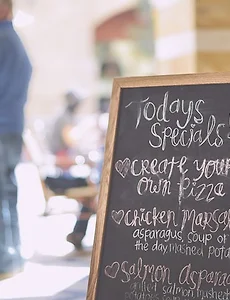 Todays
Specials
CREATE YOUR
OWN Pizza
CHICKEN MARSA
asparagus, soup or
the day mashed pota
Salmon Asparag